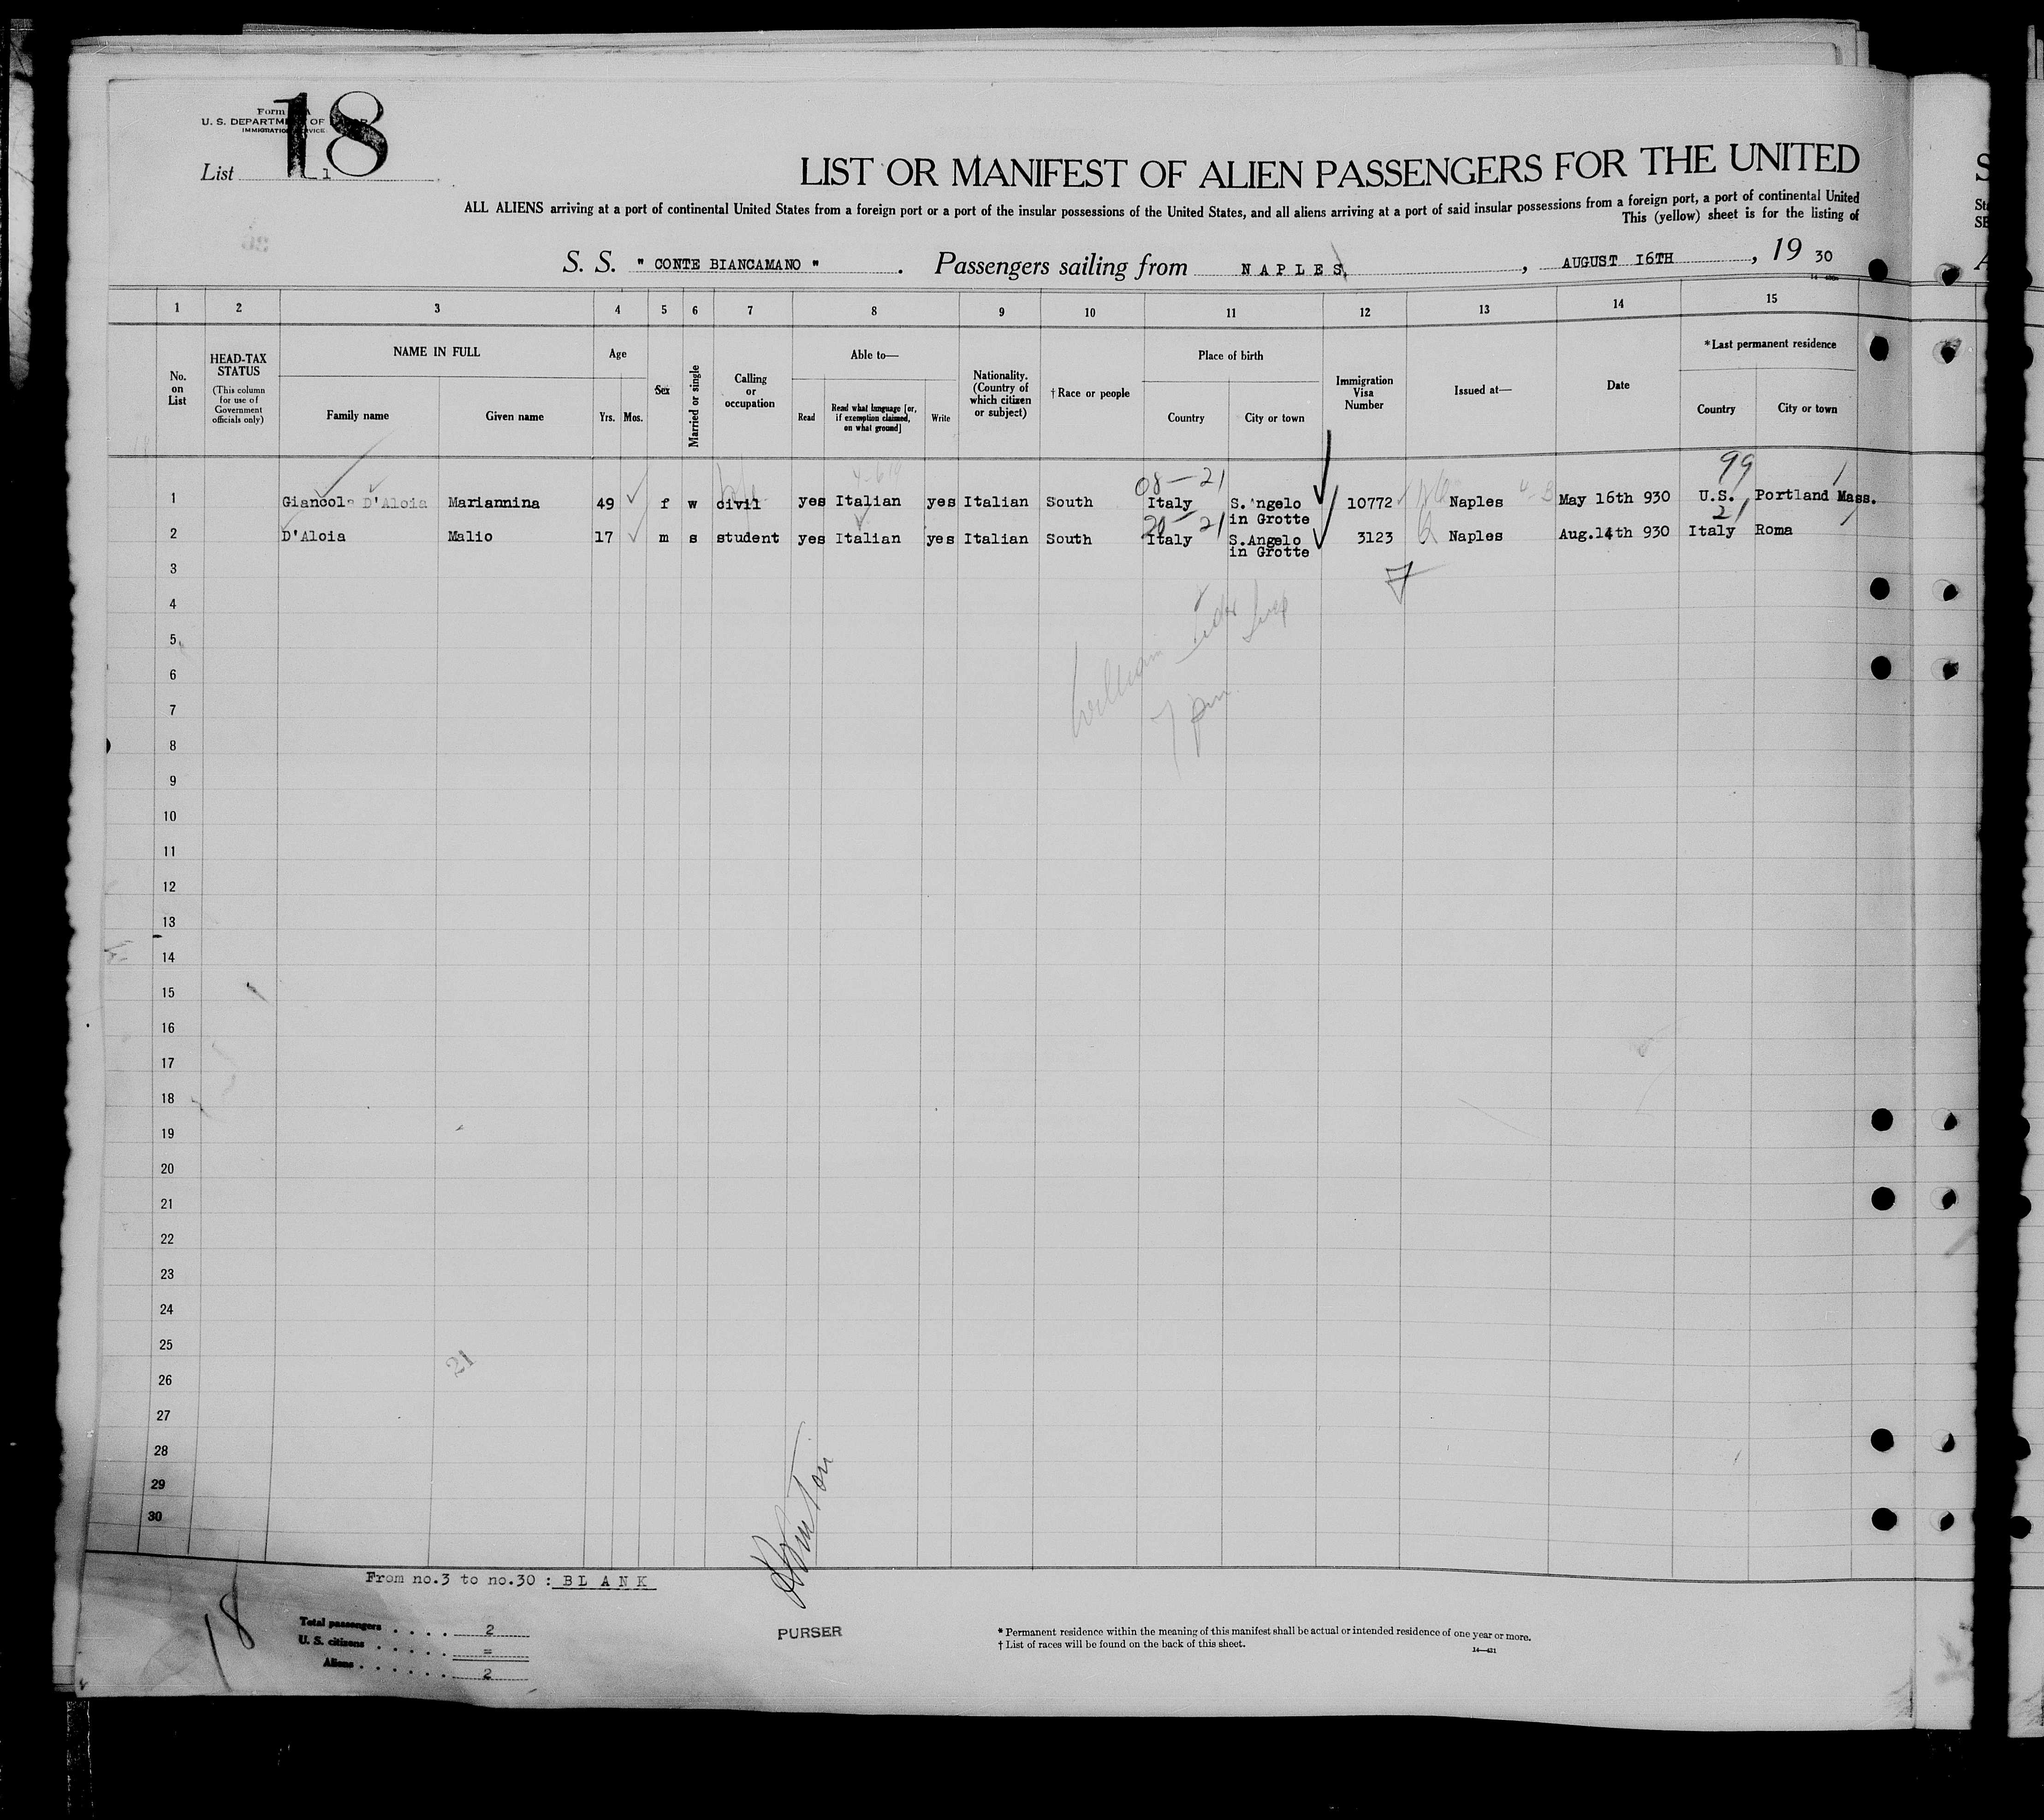 Form
U. S. DEPARTMENT OF
IMMIGRATION SERVICE
18
List 1
LIST OR MANIFEST OF ALIEN PASSENGERS FOR THE UNITED
ALL ALIENS arriving at a port of continental United States from a foreign port or a port of the insular possessions of the United States, and all aliens arriving at a port of said insular possessions from a foreign port, a port of continental United
This (yellow) sheet is for the listing of
S. S. " CONTE BIANCAMANO " . Passengers sailing from NAPLES , AUGUST 16TH , 19 30
1 2 3 4 5 6 7 8 9 10 11 12 13 14 15
No. on List
HEAD-TAX STATUS
(This column for use of Government officials only)
NAME IN FULL
Family name Given name
Age
Yrs. Mos.
Sex
Married or single
Calling or occupation
Able to—
Read
Read what language [or, if exemption claimed, on what ground]
Write
Nationality. (Country of which citizen or subject)
† Race or people
Place of birth
Country City or town
Immigration Visa Number
Issued at—
Date
*Last permanent residence
Country City or town
08 — 21 99 1
1 Giancola D'Aloia Mariannina 49 f w civil yes Italian yes Italian South Italy S.'ngelo in Grotte 10772 Naples May 16th 930 U.S. Portland Mass.
20 — 21 21
2 D'Aloia Malio 17 m s student yes Italian yes Italian South Italy S.Angelo in Grotte 3123 Naples Aug.14th 930 Italy Roma
3
7
4
5
6
William
7
7 pm
8
9
10
11
12
13
14
15
16
17
18
19
20
21
22
23
24
25
21
26
27
28
29
30
From no.3 to no.30 : BLANK
18
Total passengers . . . . 2
U. S. citizens . . . . . =
Aliens . . . . . . . 2
PURSER
* Permanent residence within the meaning of this manifest shall be actual or intended residence of one year or more.
† List of races will be found on the back of this sheet.
14—421